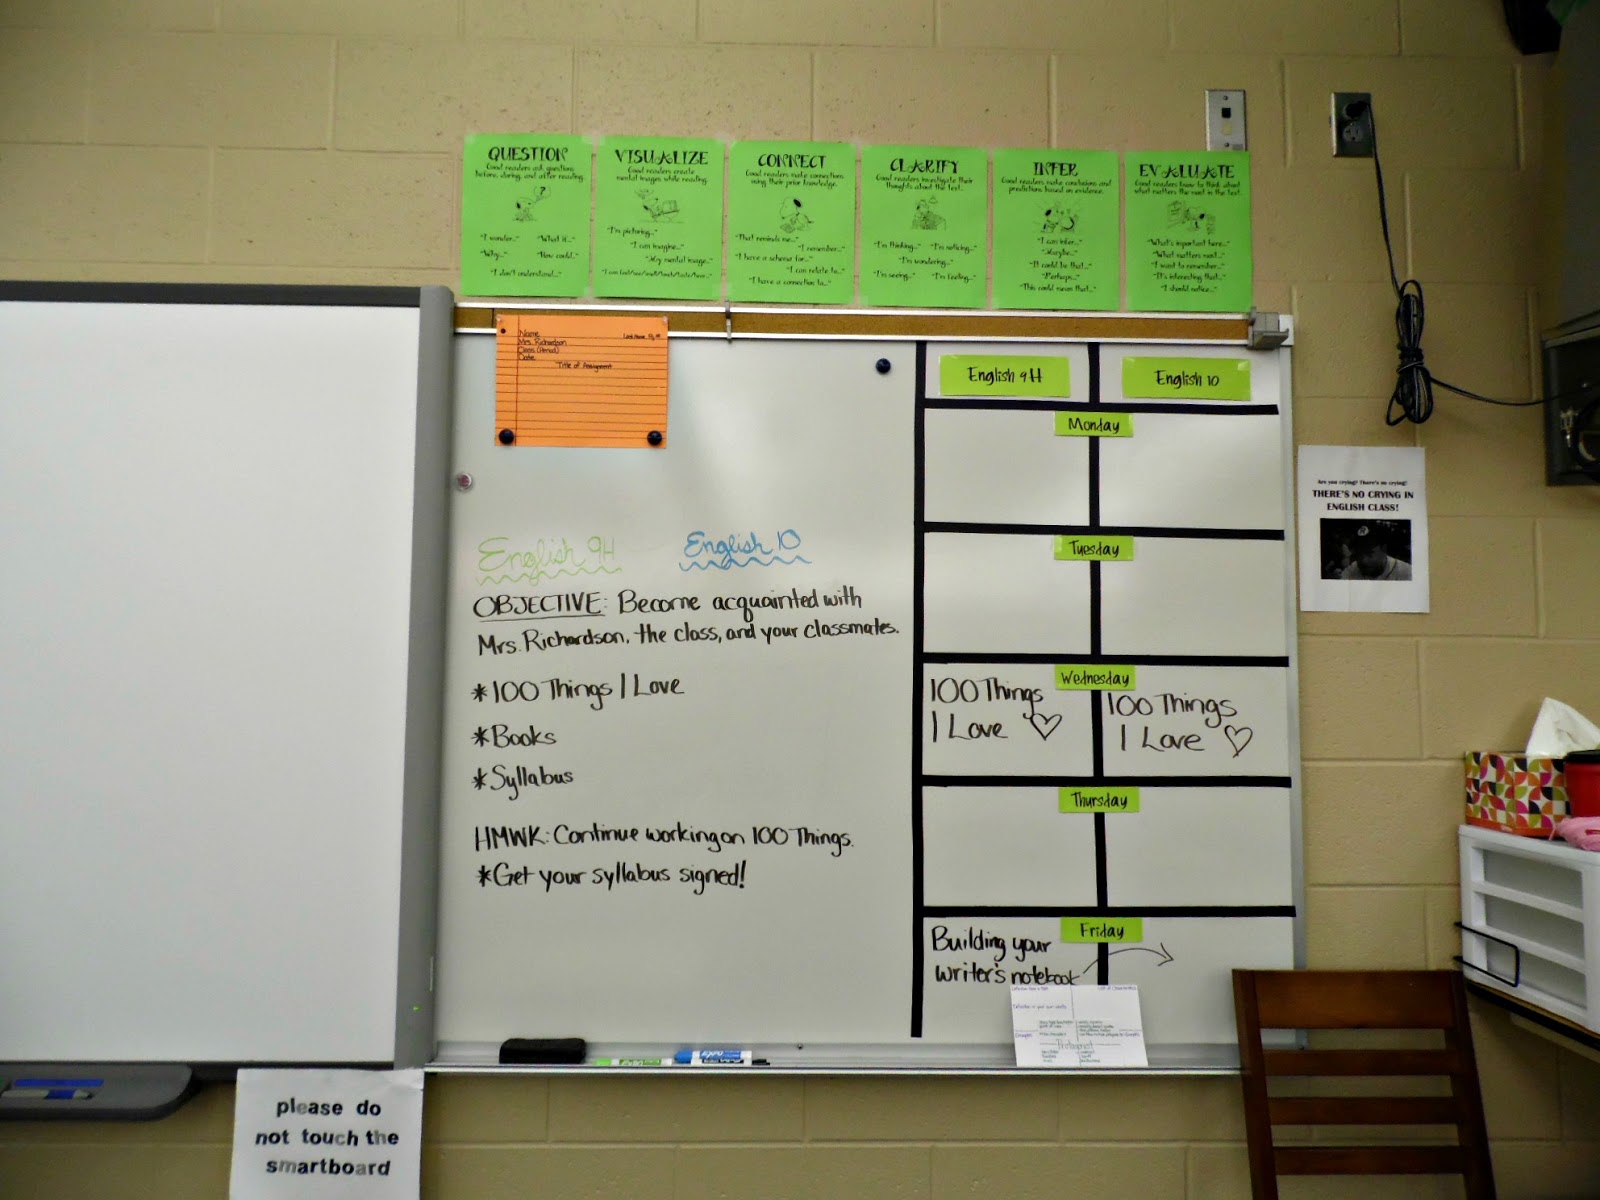 QUESTION
Good readers ask questions
before, during, and after reading.
"I wonder..." "What if..."
"Why..." "How could..."
"I don't understand..."
VISUALIZE
Good readers create
mental images while reading.
"I'm picturing..."
"I can imagine..."
"My mental image..."
CONNECT
Good readers make connections
using their prior knowledge.
"That reminds me..."
"I remember..."
"I have a schema for..."
"I can relate to..."
"I have a connection to..."
CLARIFY
Good readers investigate their
thoughts about the text.
"I'm thinking..." "I'm noticing..."
"I'm wondering..."
"I'm seeing..." "I'm feeling..."
INFER
Good readers make conclusions and
predictions based on evidence.
"I can infer..."
"Maybe..."
"It could be that..."
"Perhaps..."
"This could mean that..."
EVALUATE
Good readers know to think about
what matters the most in the text.
"What's important here..."
"What matters most..."
"I want to remember..."
"It's interesting that..."
"I should notice..."
Name
Mrs. Richardson
Class (Period)
Date
Title of Assignment
English 9H English 10
OBJECTIVE: Become acquainted with
Mrs. Richardson, the class, and your classmates.
*100 Things I Love
*Books
*Syllabus
HMWK: Continue working on 100 Things.
*Get your syllabus signed!
English 9H English 10
Monday
Tuesday
Wednesday
100 Things
I Love ♡
100 Things
I Love ♡
Thursday
Friday
Building your
writer's notebook
Are you crying? There's no crying!
THERE'S NO CRYING IN
ENGLISH CLASS!
please do
not touch the
smartboard